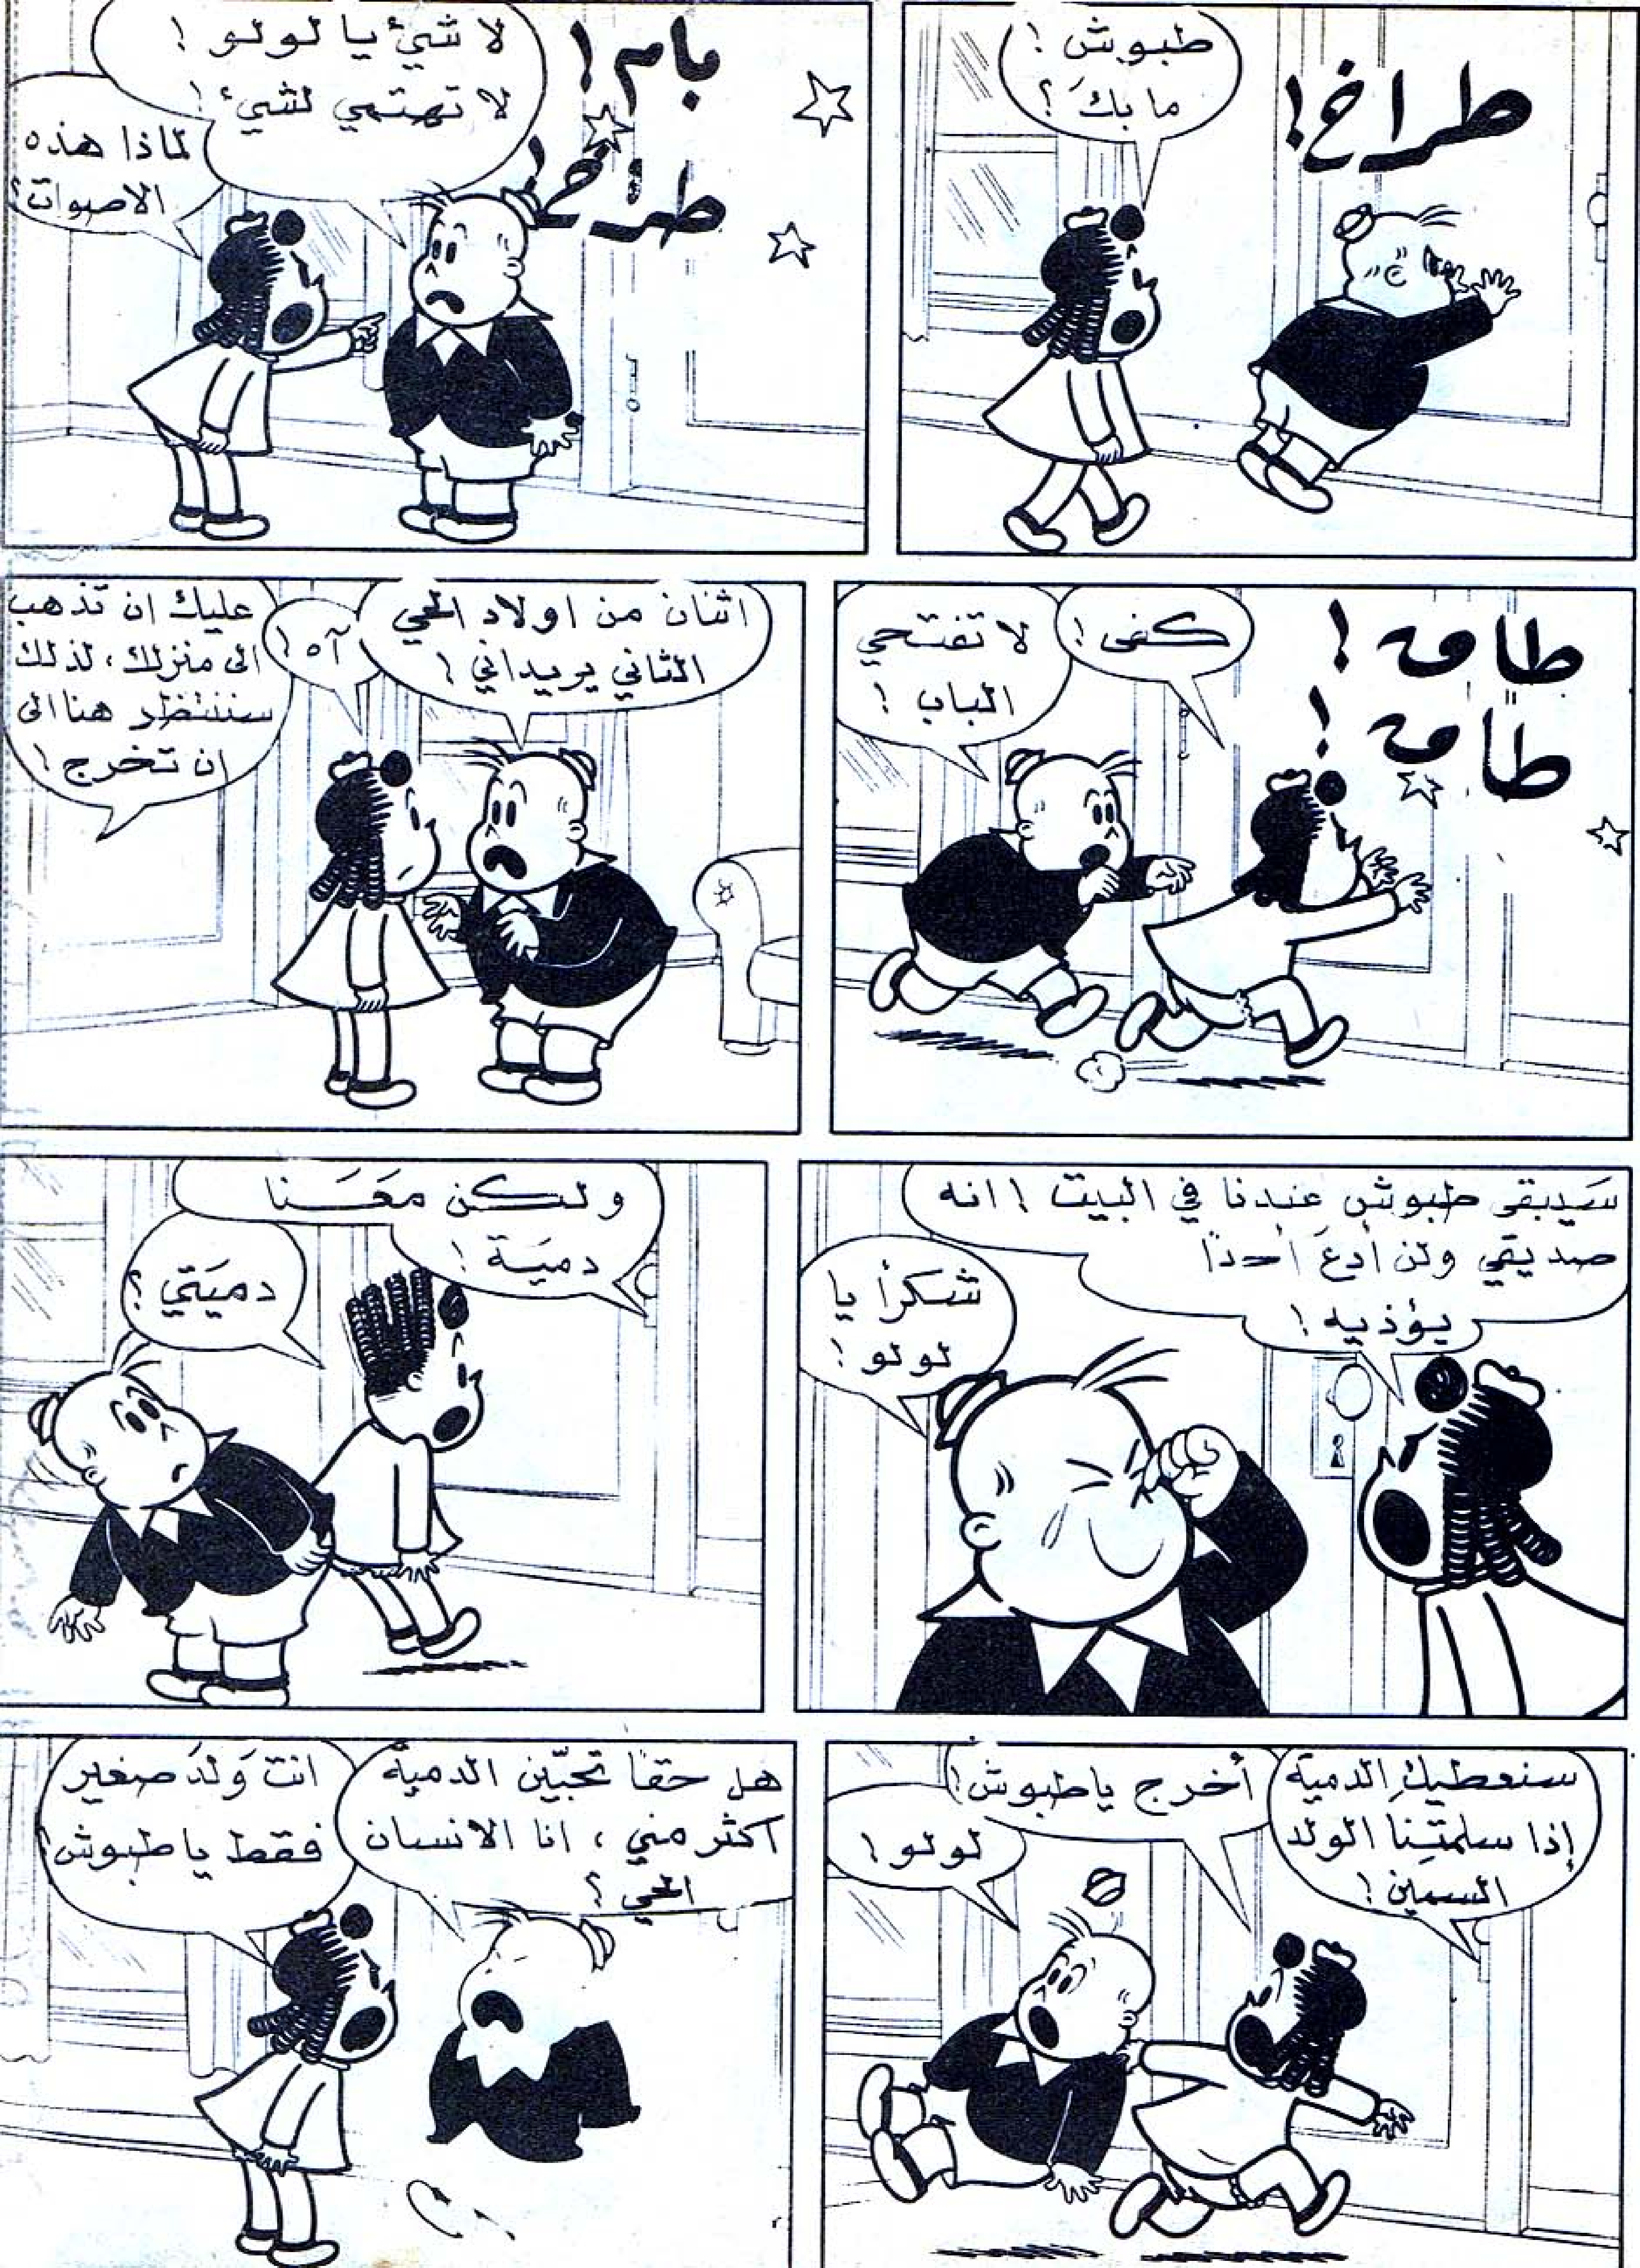 طبوش !
ما بكَ ؟
طراخ !
بام !
طراخ !
لماذا هذه
الاصوات ؟
لا شيئ يا لولو !
لا تهتمي لشيئ !
طاق !
طاق !
كفى !
لا تفتحي
الباب !
اثنان من اولاد الحي
الثاني يريداني !
آه !
عليك ان تذهب
الى منزلك ، لذلك
سننتظر هنا الى
ان تخرج !
سَيبقى طبوش عندنا في البيت ! انه
صديقي ولن أدعَ أحدًا
يؤذيه !
شكرًا يا
لولو !
ولكن معَـنا
دميَة !
دميَتي ؟
سنعطيكِ الدمية
إذا سلمتِنا الولد
السمين !
أخرج يا طبوش !
لولو !
هل حقًا تحبّين الدمية
اكثر مني ، انا الانسان
الحي ؟
انتَ وَلدَ صغير
فقط يا طبوش !